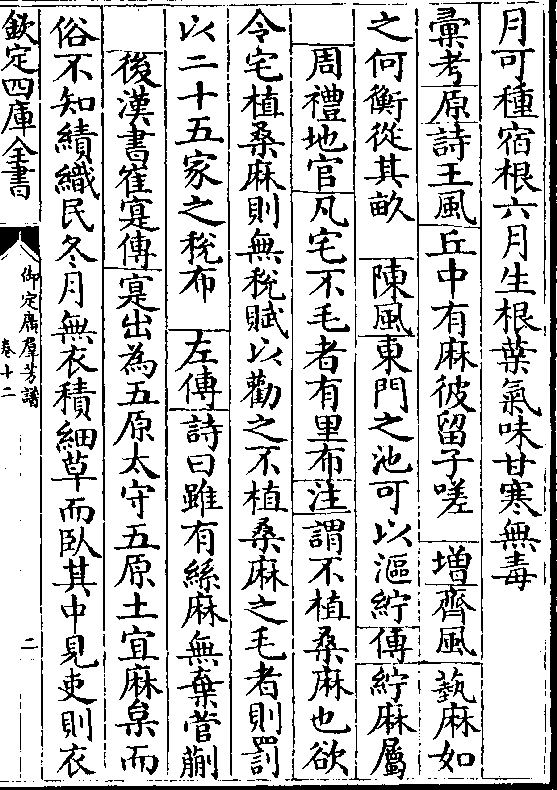 月可種宿根六月生根葉氣味甘寒無毒
彚考原詩王風丘中有麻彼留子嗟　增齊風　蓺麻如
之何衡從其畝　陳風東門之池可以漚紵傳紵麻屬
周禮地官凡宅不毛者有里布注謂不植桑麻也欲
令宅植桑麻則無稅賦以勸之不植桑麻之毛者則罰
以二十五家之稅布　左傳詩曰雖有絲麻無棄菅蒯
後漢書崔寔傳寔出為五原太守五原土宜麻枲而
俗不知績織民冬月無衣積細草而臥其中見吏則衣
欽定四庫全書
御定廣羣芳譜
卷十二
二